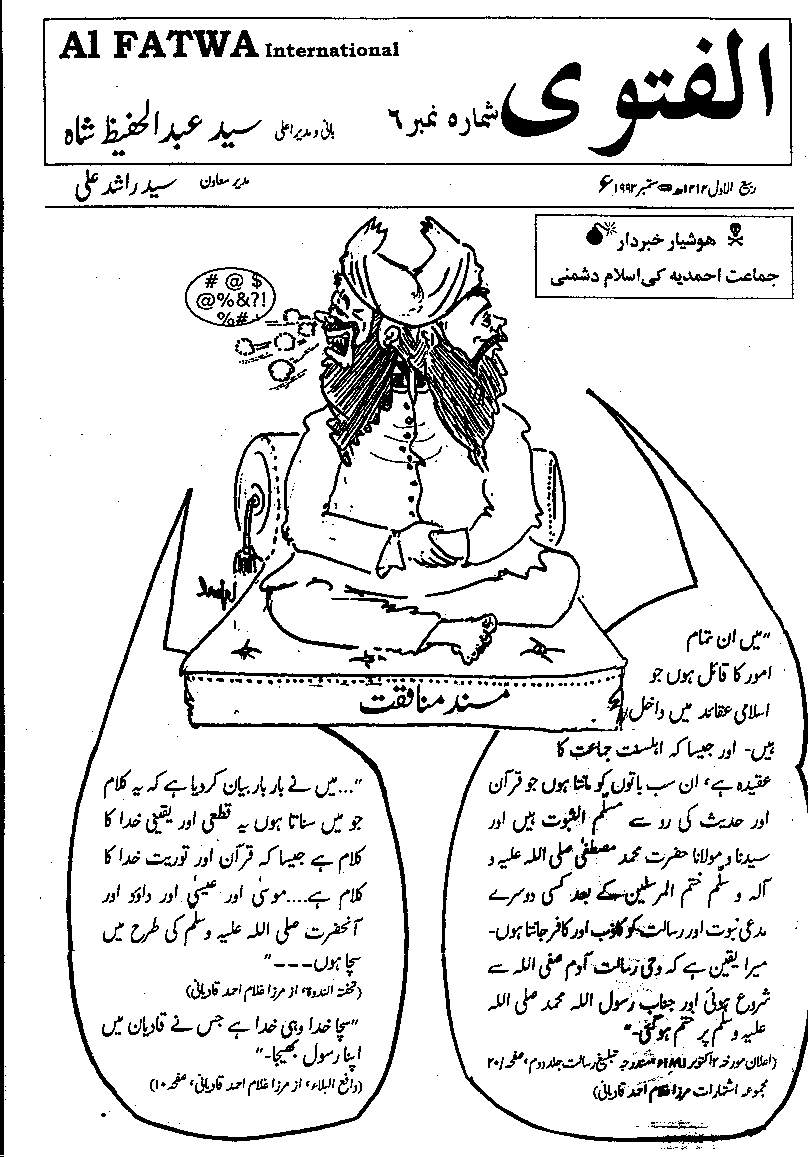 Al FATWA International
الفتوی
شمارہ نمبر ۶
بانی و مدیر اعلی سید عبدالحفیظ شاہ
ربیع الاول ۱۴۱۲ھ ستمبر ۱۹۹۲ ۶
مدیر معاون سید راشد علی
ہوشیار خبردار
جماعت احمدیہ کی اسلام دشمنی
# @ $
@%&?!
%#
مسند منافقت
"میں ان تمام
امور کا قائل ہوں جو
اسلامی عقائد میں داخل
ہیں- اور جیسا کہ اہلسنت جماعت کا
عقیدہ ہے، ان سب باتوں کو مانتا ہوں جو قرآن
اور حدیث کی رو سے مسلم الثبوت ہیں اور
سیدنا و مولانا حضرت محمد مصطفیٰ صلی اللہ علیہ و
آلہ و سلم ختم المرسلین کے بعد کسی دوسرے
مدعی نبوت اور رسالت کو کاذب اور کافر جانتا ہوں-
میرا یقین ہے کہ وحی رسالت آدم صفی اللہ سے
شروع ہوئی اور جناب رسول اللہ محمد صلی اللہ
علیہ وسلم پر ختم ہوگئی-"
(اعلان مورخہ ۲ اکتوبر مندرجہ تبلیغ رسالت جلد دوم، صفحہ ۲۰/
مجموعہ اشتہارات مرزا غلام احمد قادیانی)
"...میں نے بار بار بیان کردیا ہے کہ یہ کلام
جو میں سناتا ہوں یہ قطعی اور یقینی خدا کا
کلام ہے جیسا کہ قرآن اور توریت خدا کا
کلام ہے....موسیٰ اور عیسیٰ اور داؤد اور
آنحضرت صلی اللہ علیہ وسلم کی طرح میں
سچا ہوں---"
(تحفۃ الندوۃ، از مرزا غلام احمد قادیانی)
"سچا خدا وہی خدا ہے جس نے قادیان میں
اپنا رسول بھیجا-"
(دافع البلاء، از مرزا غلام احمد قادیانی، صفحہ ۱۰)